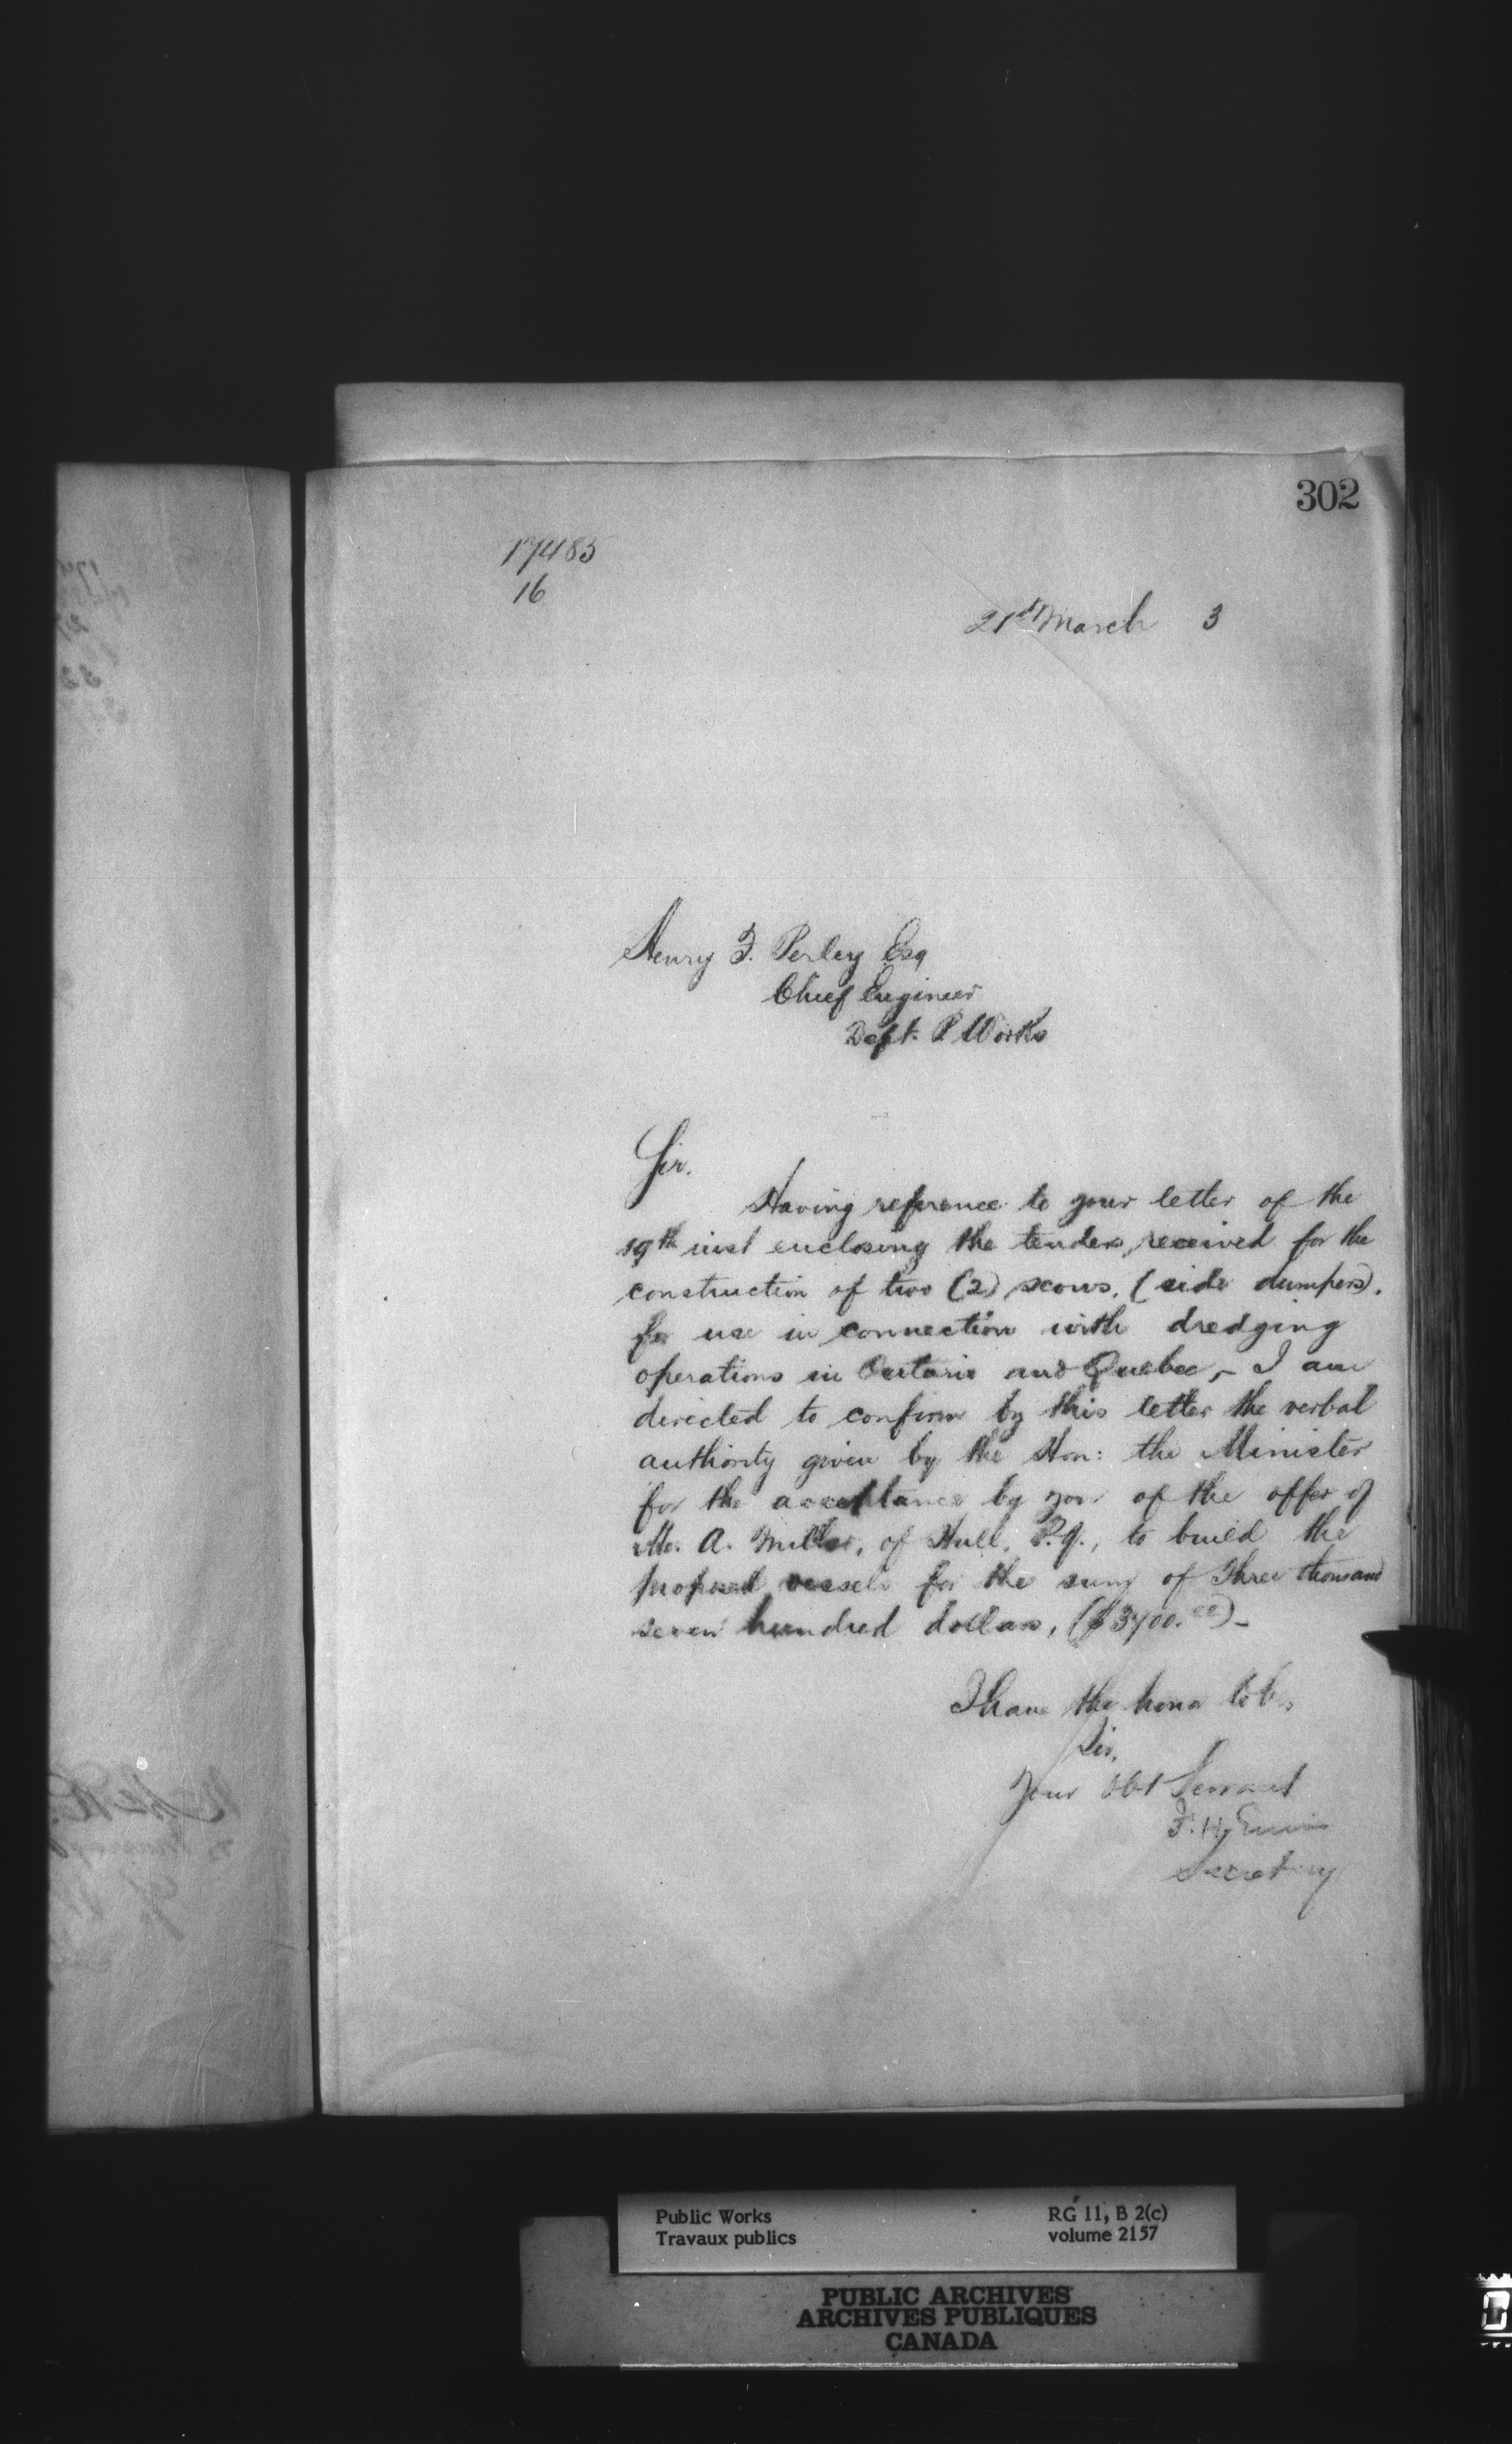 302
17485
16
21st March 3
Henry F. Perley Esq
Chief Engineer
Dept. P Works
Sir.
Having reference to your letter of the
19th inst enclosing the tenders received for the
construction of two (2) scows, (side dumpers),
for use in connection with dredging
operations in Ontario and Quebec, - I am
directed to confirm by this letter the verbal
authority given by the Hon: the Minister
for the acceptance by you of the offer of
Mr. A. Miller, of Hull, P.Q., to build the
proposed vessels for the sum of Three thousand
seven hundred dollars, ($3700.00) -
I have the honor to be,
Sir,
Your Obt Servant
F. H. Ennis
Secretary
Public Works
Travaux publics
RG 11, B 2(c)
volume 2157
PUBLIC ARCHIVES
ARCHIVES PUBLIQUES
CANADA